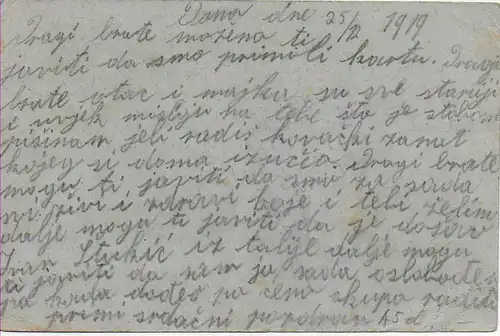 Dana dne 25/II 1919
Dragi brate možemo ti
javiti da smo primili kartu. Dragi
brate otac i majka su sve stariji
i uvjek misliju na tebe što je s tobom
pišinam jeli radiš kovački zanat
kojeg si doma izučio. Dragi brate
mogu ti javiti da smo za sada
svi živi i zdravi koje i tebi želim
dalje mogu ti javiti da je došao
Ivan iz talije dalje mogu
ti javiti da nam je sada
pa kada dođeš po ceno skupa
primi srdačni pozdrav